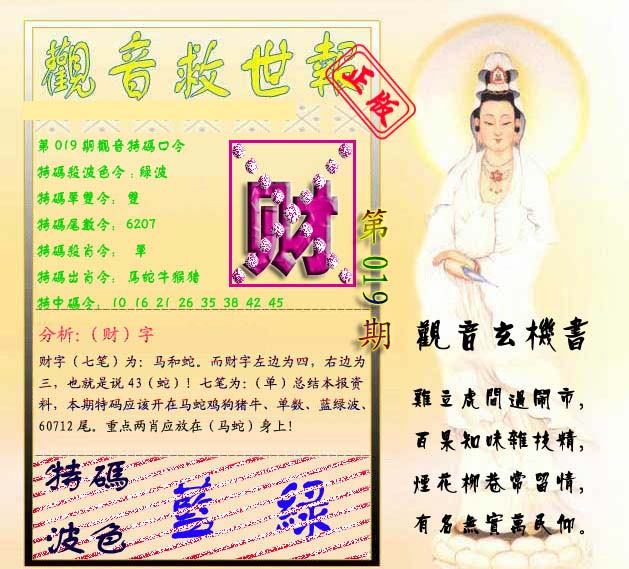 觀音救世報
正版
第019期觀音特碼口令
特碼殺波色令:綠波
特碼單雙令: 雙
特碼尾數令: 6207
特碼殺肖令: 單
特碼出肖令: 馬蛇牛猴猪
特中碼令: 10 16 21 26 35 38 42 45
财
第019期
分析:(财)字
财字(七笔)为: 马和蛇。而财字左边为四, 右边为
三, 也就是说 43(蛇)! 七笔为:(单)总结本报资
料, 本期特码应该开在马蛇鸡狗猪牛、单数、蓝绿波、
60712 尾。重点两肖应放在(马蛇)身上!
特碼
波色
藍 綠
觀音玄機書
雞立虎間過鬧市,
百果知味雜技精,
煙花柳巷常留情,
有名無實萬民仰。